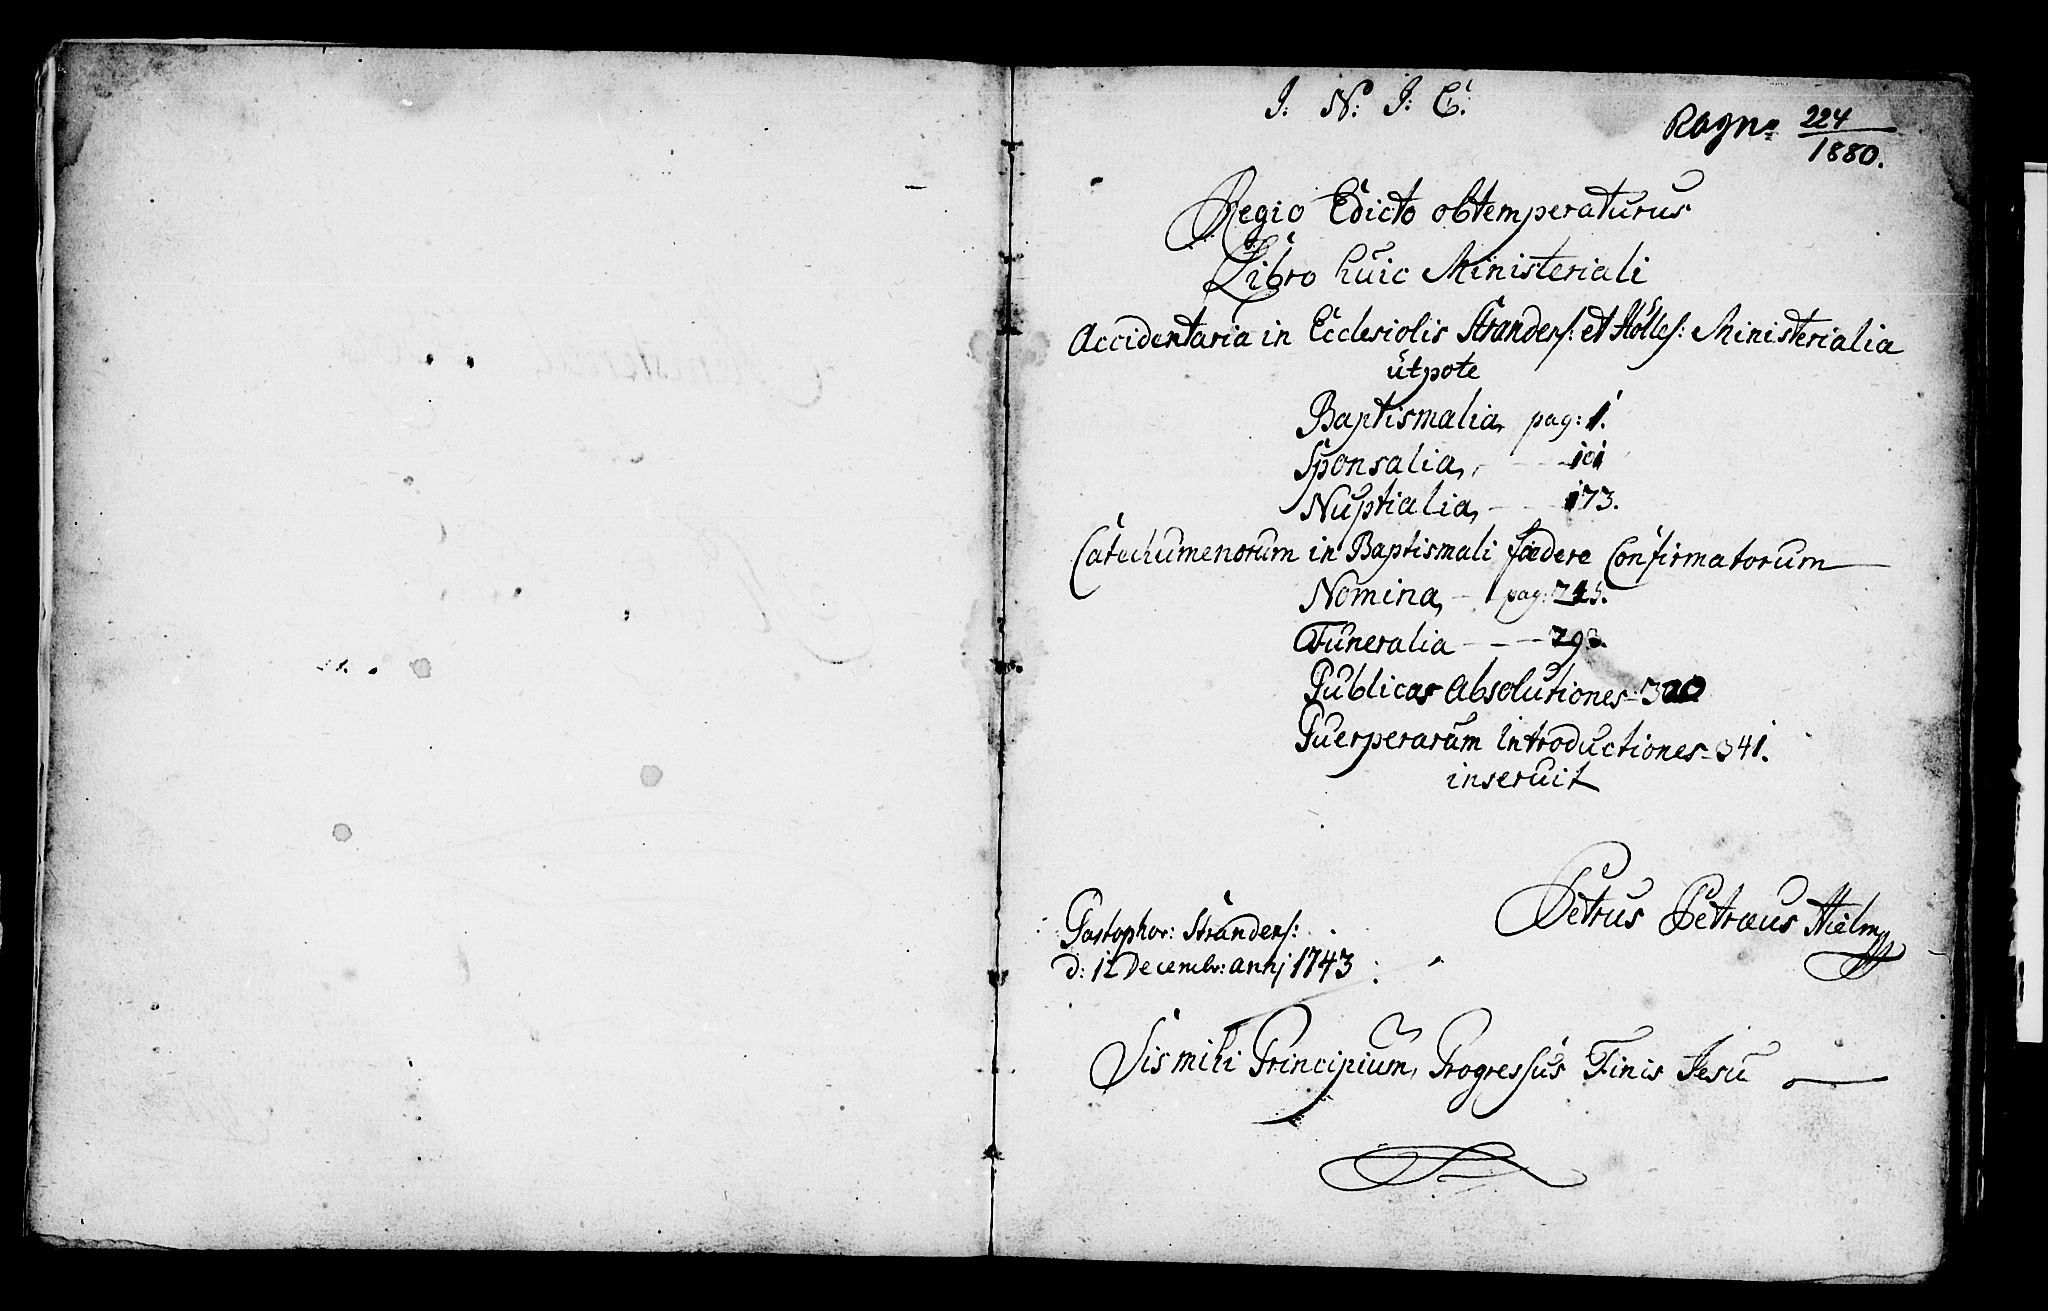 J: N: J: C:
Ragn. 224/1880.
Regio Edicto obtemperaturus
Libro huic Ministeriali
Accidentaria in Ecclesiolis Strandens: et Kölles: Ministerialia
ütpote
Baptismalia, pag: 1.
Sponsalia, - - - 101
Nuptialia, - - 173.
Catechumenorum in Baptismali fædere Confirmatorum
Nomina, - pag:
Funeralia - - -
Publicas Absolutiones -
Puerperarum Introductiones - 341.
inseruit
Petrus Petræus Hielm
Pastophor: Strandens:
d: 12 Decembr: annj 1743
Sis mihi Principium, Progressüs Finis Jesu